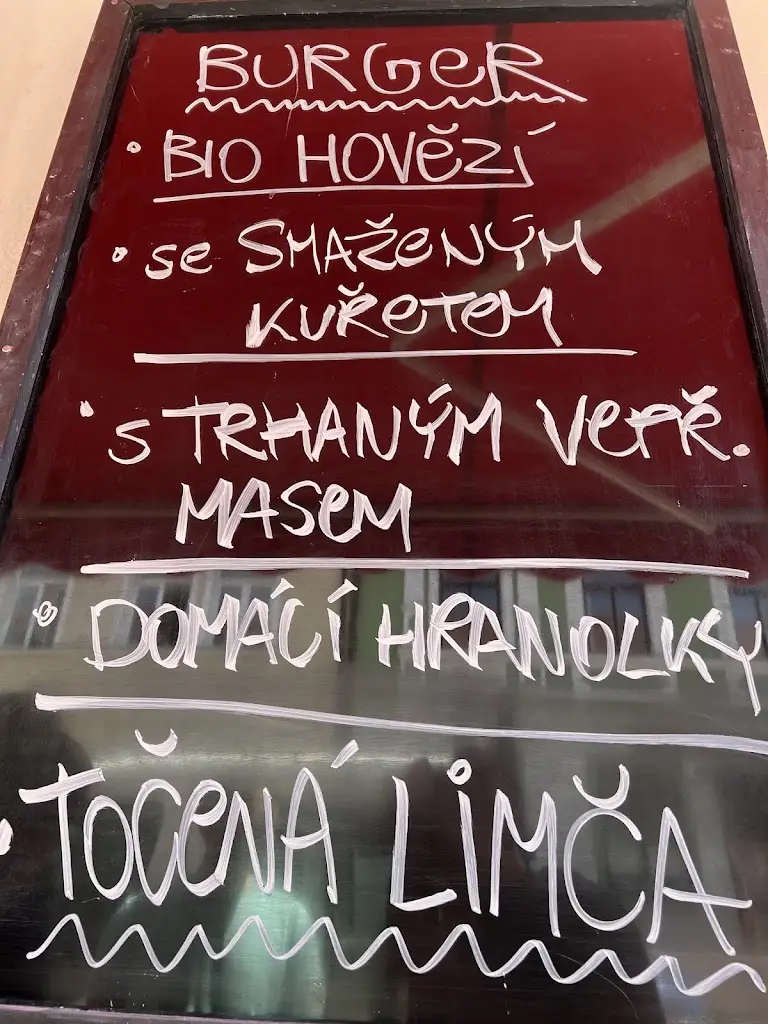 BURGER
• BIO HOVĚZÍ
• se SMAŽENÝM
KUŘETEM
• s TRHANÝM VEPŘ.
MASEM
• DOMÁCÍ HRANOLKY
• TOČENÁ LIMČA